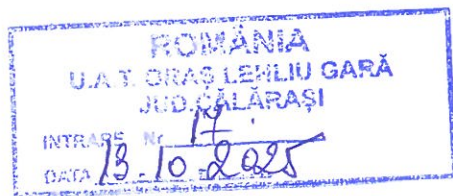 ROMÂNIA
U.A.T. ORAȘ LEHLIU GARĂ
JUD. CĂLĂRAȘI
INTRARE Nr. 17
DATA 13.10.2025